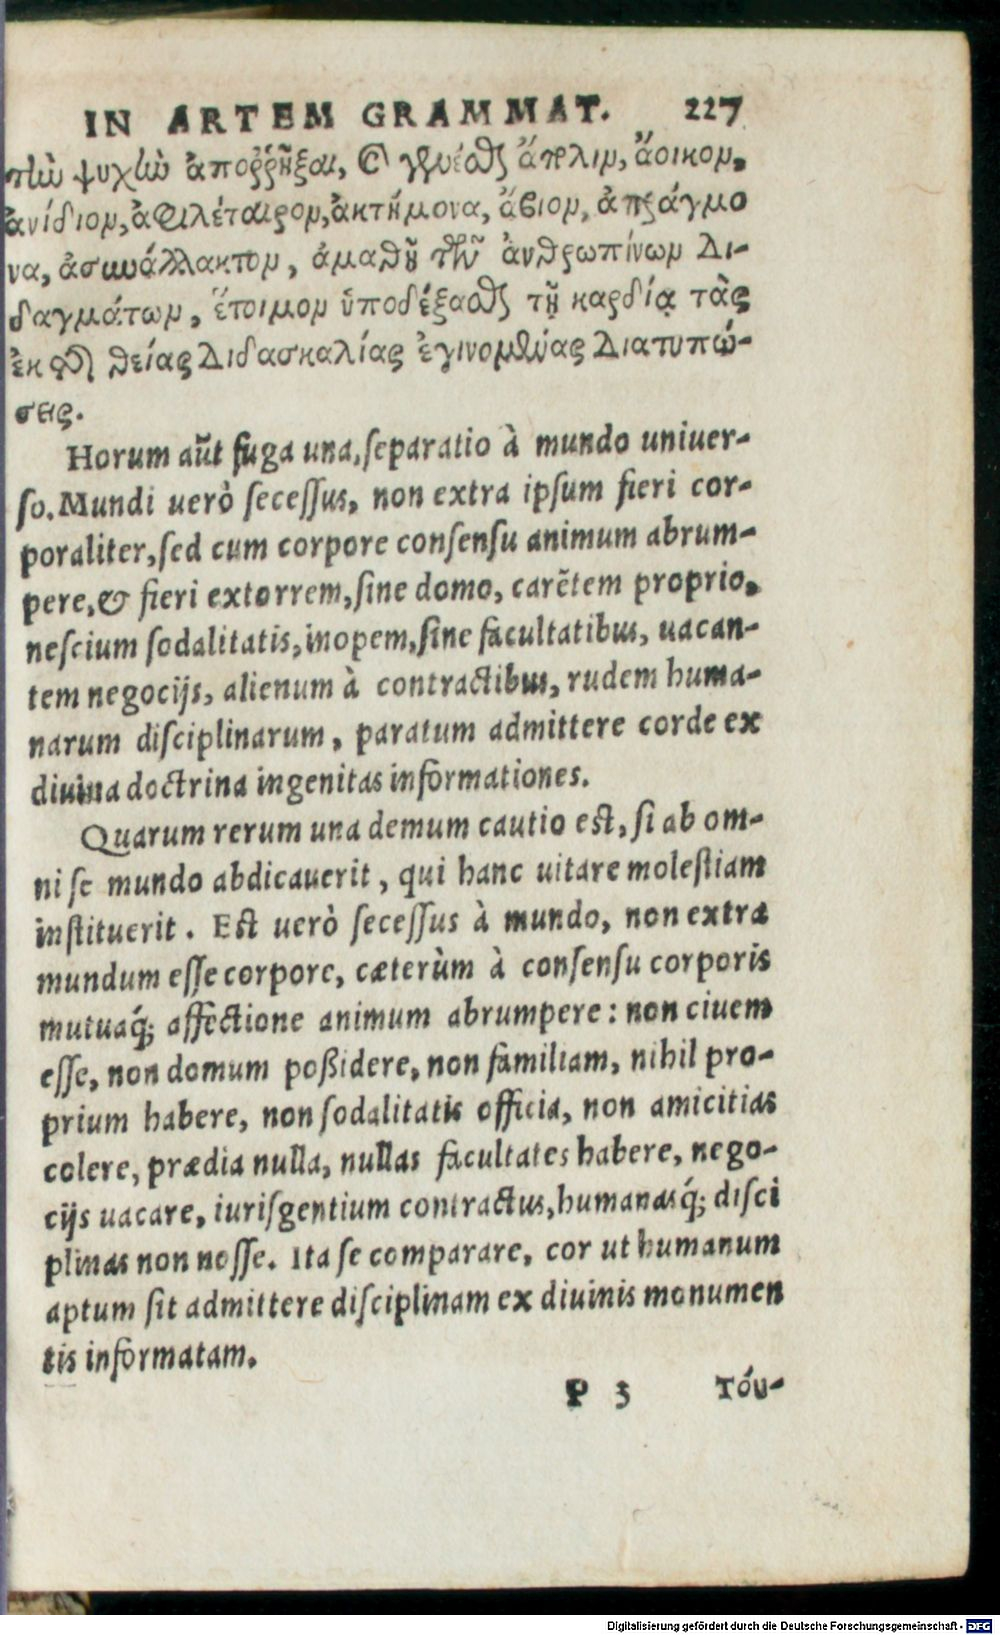 IN ARTEM GRAMMAT. 227
τὼ ψυχὼ ἀποῤῥῆξαι, καὶ γενέσθαι ἄπολιν, ἄοικον,
ἀνίδιον, ἀφιλέταιρον, ἀκτήμονα, ἄβιον, ἀπράγμο
να, ἀσυνάλλακτον, ἀμαθῆ τῶν ἀνθρωπίνων δι-
δαγμάτων, ἕτοιμον ὑποδέξασθαι τῇ καρδίᾳ τὰς
ἐκ τῆς θείας διδασκαλίας ἐγινομένας διατυπώ-
σεις.
Horum aũt fuga una, separatio à mundo uniuer-
so. Mundi uerò secessus, non extra ipsum fieri cor-
poraliter, sed cum corpore consensu animum abrum-
pere, & fieri extorrem, sine domo, carẽtem proprio,
nescium sodalitatis, inopem, sine facultatibus, uacan-
tem negocijs, alienum à contractibus, rudem huma-
narum disciplinarum, paratum admittere corde ex
diuina doctrina ingenitas informationes.
Quarum rerum una demum cautio est, si ab om-
ni se mundo abdicauerit, qui hanc uitare molestiam
instituerit. Est uerò secessus à mundo, non extra
mundum esse corpore, cæterùm à consensu corporis
mutuaq́; affectione animum abrumpere: non ciuem
esse, non domum poßidere, non familiam, nihil pro-
prium habere, non sodalitatis officia, non amicitias
colere, prædia nulla, nullas facultates habere, nego-
cijs uacare, iurisgentium contractus, humanasq́; disci
plinas non nosse. Ita se comparare, cor ut humanum
aptum sit admittere disciplinam ex diuinis monumen
tis informatam.
P 3 τόυ-
Digitalisierung gefördert durch die Deutsche Forschungsgemeinschaft - DFG